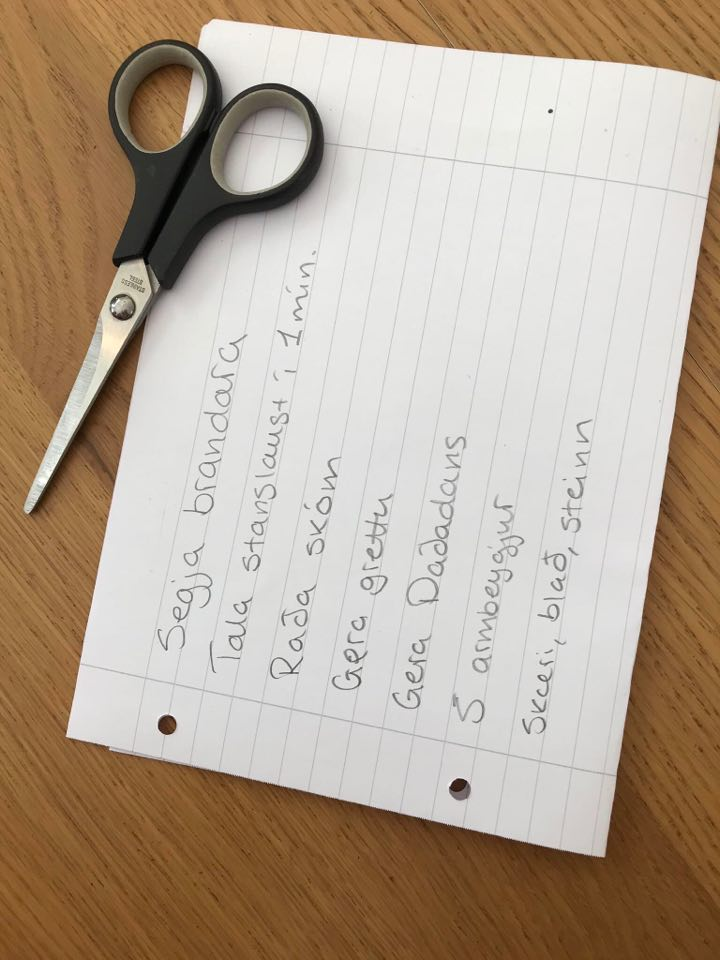 Segja brandara
Tala stanslaust í 1 mín.
Raða skóm
Gera grettu
Gera Daðadans
5 armbeygjur
Skæri, blað, steinn
STAINLESS
STEEL